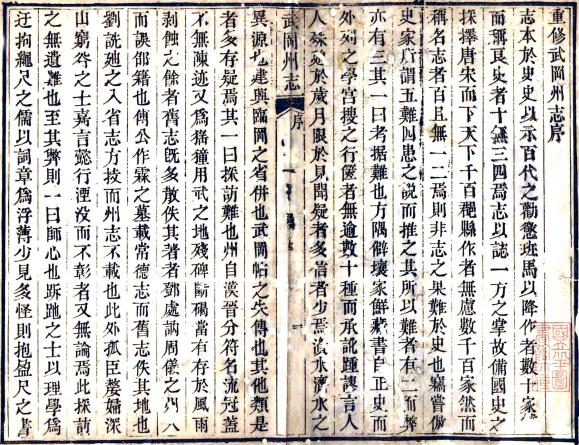 重修武岡州志序
志本於史史以示百代之勸懲班馬以降作者數十家
而稱良史者十無三四焉志以誌一方之掌故備國史之
採擇唐宋而下天下千百縣作者無慮數千百家然而
稱名志者百且無一二焉則非志之果難於史也竊嘗倣
史家所謂五難四患之說而推之其所以難者有二而弊
亦有三其一曰考据難也方隅僻壤家鮮藏書自正史而
外列之學宮搜之行篋者無逾數十種而承訛踵謬言人
人殊於歲月限於見聞疑者多當者少焉資水水之
武岡州志
序
異源也建興臨岡之省併也武岡帖之失傳也其他類是
者多存疑焉其一曰採訪難也州自漢晉分符名流冠蓋
不無陳迹又為猺獞用武之地殘碑斷碣當有存於風雨
剝蝕之餘者舊志既多散佚其著者鄧處訥周儀之州
而誤邵籍也傅公作霖之墓載常德志而舊志佚其地也
劉詵廸之入省志方技而州志不載也此外孤臣嫠婦深
山窮谷之士嘉言懿行湮沒而不彰者又無論焉此採訪
之無遺難也至其弊則一曰師心也跅之士以理學為
迂拘繩尺之儒以詞章為浮薄少見多怪則抱盈尺之書